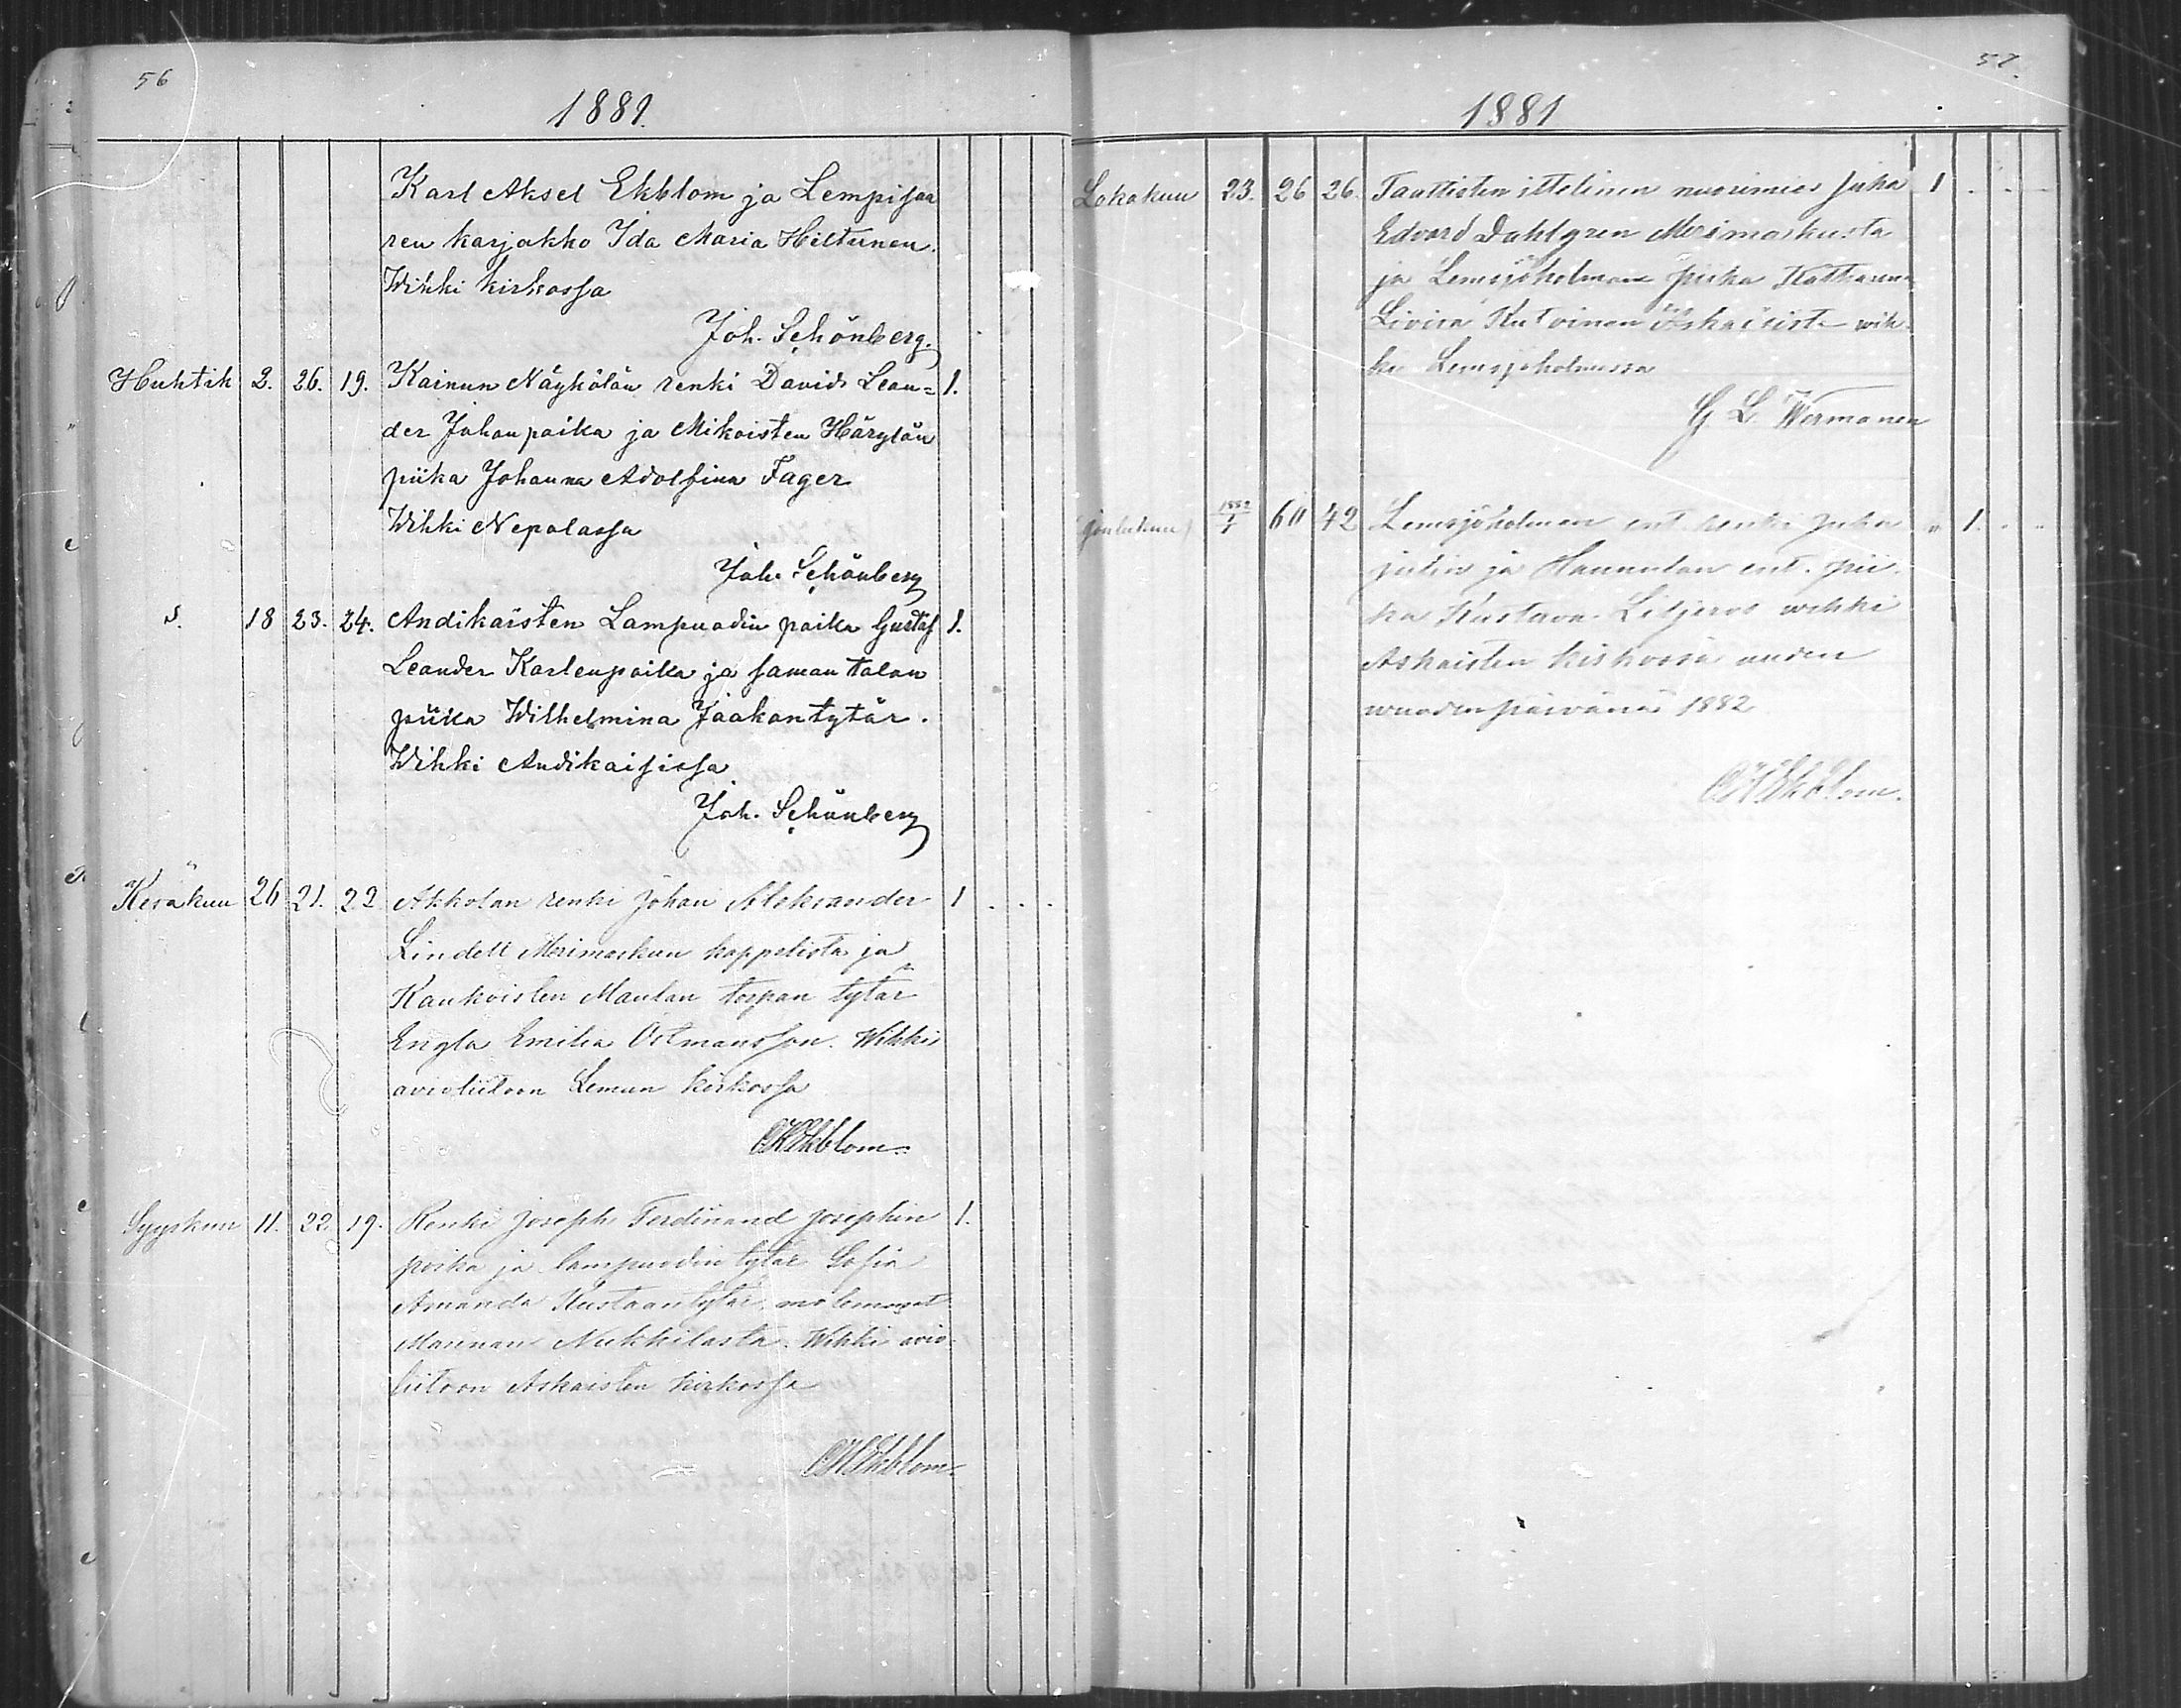 56
1881.
Karl Aksel Ekblom ja Lempisaa
ren karjakko Ida Maria Hiltunen.
Wihki kirkossa
Joh. Schönberg.
Huhtik 2. 26. 19. Kainun Näykölän renki David Lean= 1.
der Juhanpoika ja Mikoisten Härylän
piika Johanna Adolfina Fager
Wihki Nepolassa
Joh. Schönberg
S. 18 23. 24. Andikaisten Lampuadin poika Gustaf 1.
Leander Karlenpoika ja saman talon
piika Wilhelmina Jaakontytär.
Wihki Andikaisissa
Joh. Schönberg
Kesäkuu 26 21. 22 Akkolan renki Johan Aleksander 1 . . .
Lindell Merimaskun kappelista ja
Kankoisten Maulan torpan tytär
Engla Emilia Östmansson. Wihkis
avioliitoon Lemun kirkossa
Ekblom.
Syyskuu 11. 22. 19. Renki Joseph Ferdinand Josephin 1.
poika ja lampuodin tytär Sofia
Amanda Kustaantytär, molemmat
Mannan Nukkilasta. Wihki avio-
liitoon Askaisten kirkossa
Ekblom.
57.
1881
Lokakuu 23. 26 26. Taattisten ittelinen nuorimies Juha 1 . . .
Edvard Dahlgren Merimaskusta
ja Lemsjöholman piika Katharina
Livira Kutvinen Askaisista wih-
ki Lemsjöholmissa
G. L. Wermanen
Joulukuu 1882 1/1 60 42 Lemsjöholman ent. renki Juha " 1. . .
ja Hannulan ent. pii-
ka Kustava Liljeros wihki
Askaisten kirkossa uuden
wuoden päivänä 1882
Ekblom.